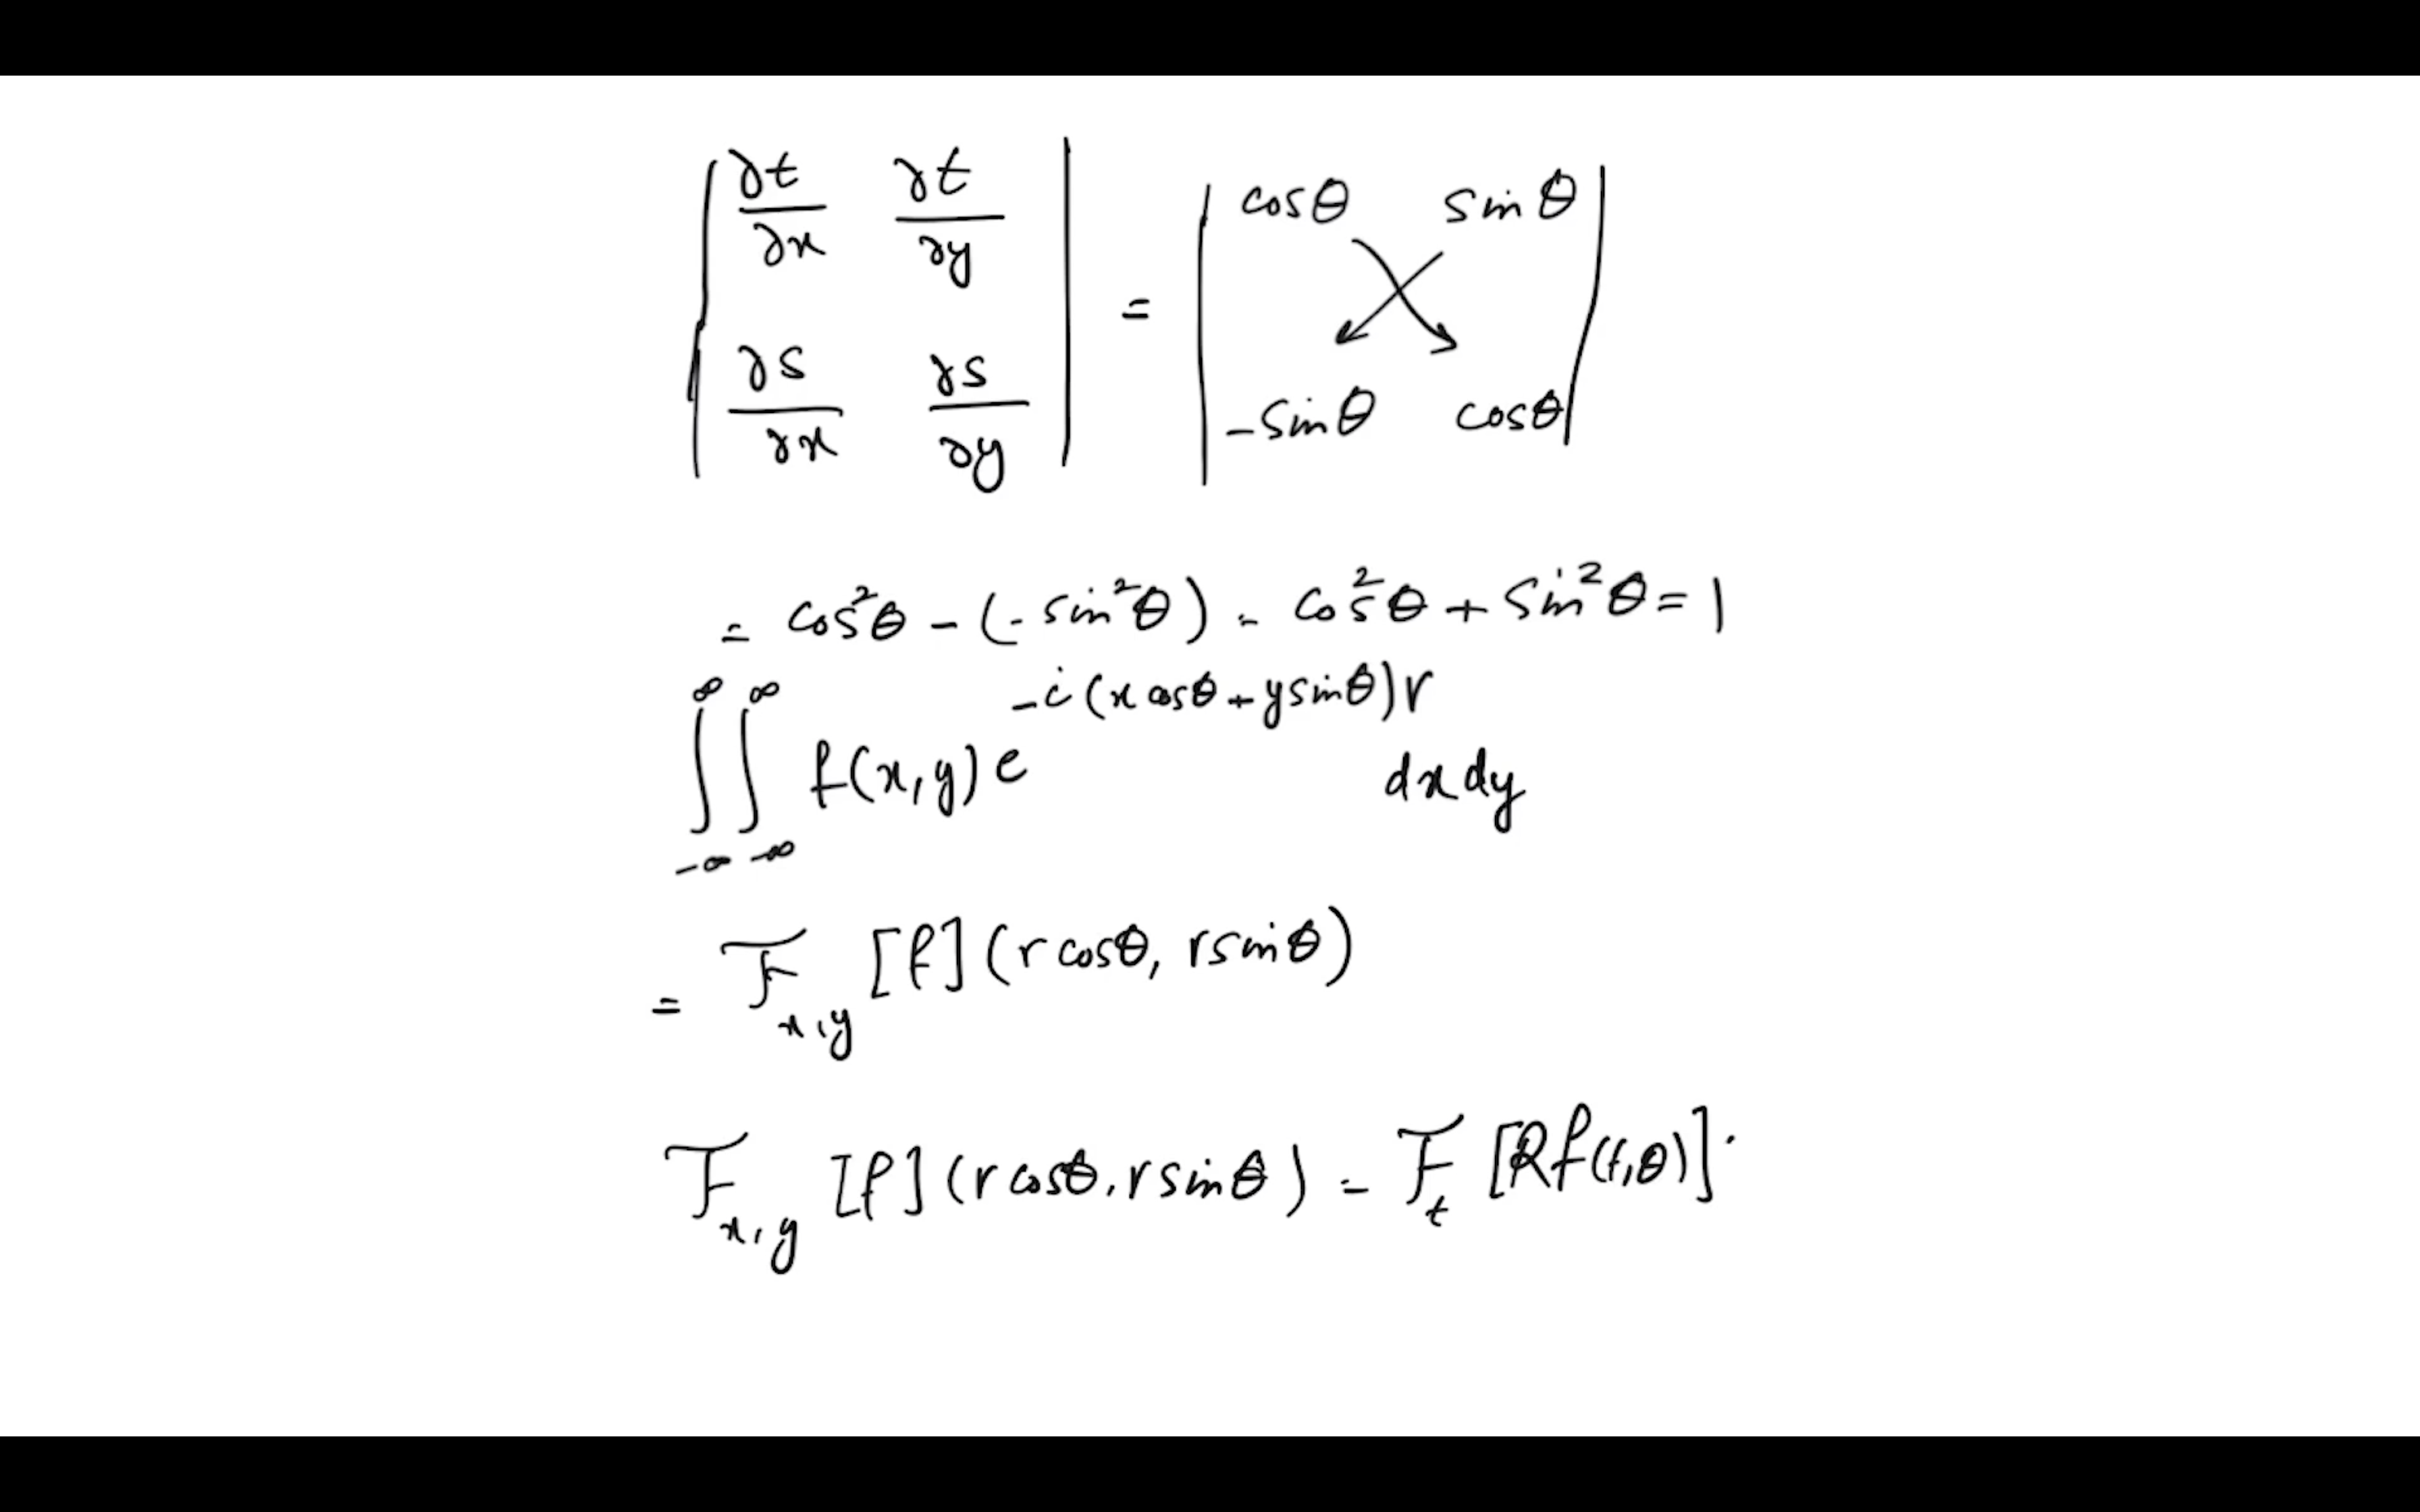 | ∂t/∂x ∂t/∂y ; ∂s/∂x ∂s/∂y | = | cosθ sinθ ; -sinθ cosθ |
= cos²θ - (-sin²θ) = cos²θ + sin²θ = 1
∫_{-∞}^{∞} ∫_{-∞}^{∞} f(x,y) e^{-i(x cosθ + y sinθ)r} dx dy
= ℱ_{x,y} [f](r cosθ, r sinθ)
ℱ_{x,y} [f](r cosθ, r sinθ) = ℱ_t [Rf(t,θ)].